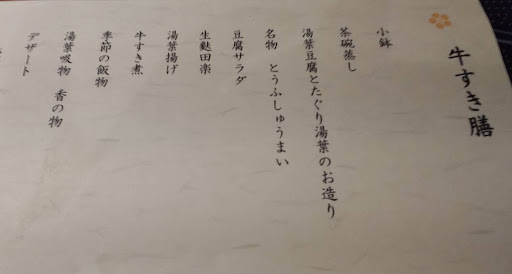 牛すき膳
小鉢
茶碗蒸し
湯葉豆腐とたぐり湯葉のお造り
名物　とうふしゅうまい
豆腐サラダ
生麩田楽
湯葉揚げ
牛すき煮
季節の飯物
湯葉吸物　香の物
デザート